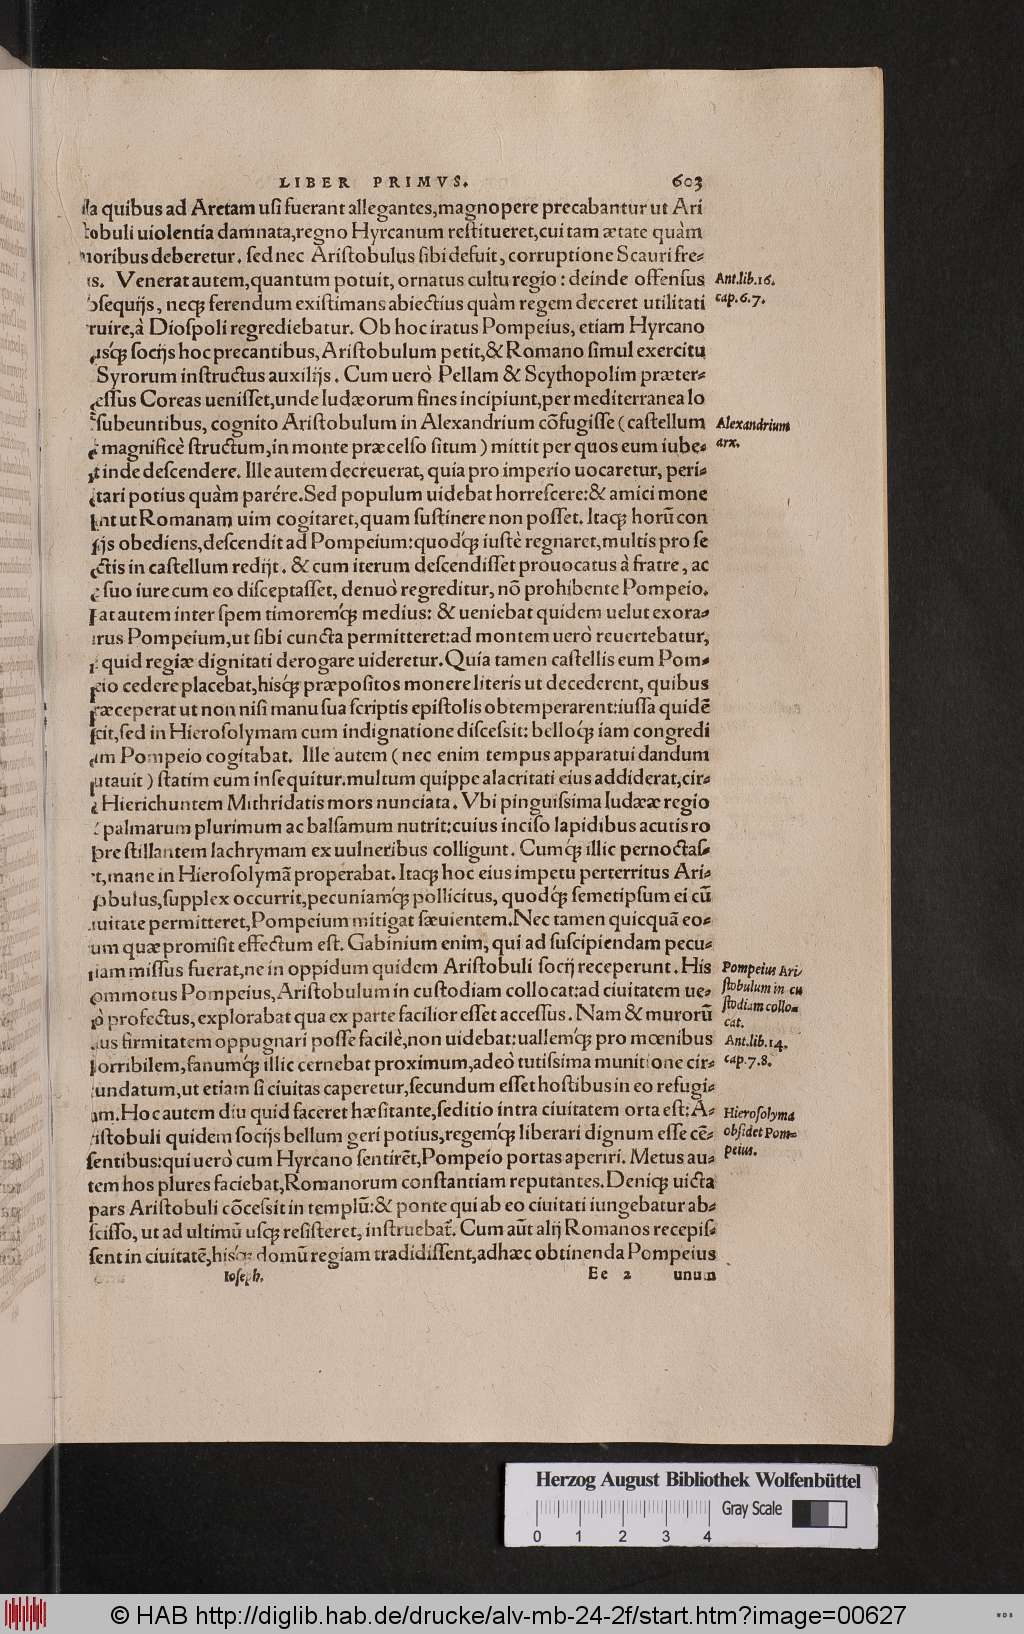 LIBER PRIMVS. 603
la quibus ad Aretam usi fuerant allegantes, magnopere precabantur ut Ari
tobuli uiolentia damnata, regno Hyrcanum restitueret, cui tam ætate quàm
moribus deberetur. sed nec Aristobulus sibi defuit, corruptione Scauri fre-
us. Venerat autem, quantum potuit, ornatus cultu regio: deinde offensus
bsequijs, neqꝫ ferendum existimans abiectius quàm regem deceret utilitati
ruire, à Diospoli regrediebatur. Ob hoc iratus Pompeius, etiam Hyrcano
usqꝫ socijs hoc precantibus, Aristobulum petit, & Romano simul exercitu
Syrorum instructus auxilijs. Cum uerò Pellam & Scythopolim præter-
essus Coreas uenisset, unde Iudæorum fines incipiunt, per mediterranea lo
subeuntibus, cognito Aristobulum in Alexandrium cõfugisse (castellum
magnificè structum, in monte præcelso situm) mittit per quos eum iube-
t inde descendere. Ille autem decreuerat, quia pro imperio uocaretur, peri-
tari potius quàm parére. Sed populum uidebat horrescere: & amici mone
nt ut Romanam uim cogitaret, quam sustinere non posset. Itaqꝫ horũ con
ijs obediens, descendit ad Pompeium: quodqꝫ iustè regnaret, multis pro se
ctis in castellum redijt. & cum iterum descendisset prouocatus à fratre, ac
suo iure cum eo disceptasset, denuò regreditur, nõ prohibente Pompeio.
at autem inter spem timoremqꝫ medius: & ueniebat quidem uelut exora-
rus Pompeium, ut sibi cuncta permitteret: ad montem uerò reuertebatur,
quid regiæ dignitati derogare uideretur. Quia tamen castellis eum Pom-
eio cedere placebat, hisqꝫ præpositos monere literis ut decederent, quibus
ræceperat ut non nisi manu sua scriptis epistolis obtemperarent: iussa quidẽ
cit, sed in Hierosolymam cum indignatione discessit: belloqꝫ iam congredi
um Pompeio cogitabat. Ille autem (nec enim tempus apparatui dandum
utauit) statim eum insequitur. multum quippe alacritati eius addiderat, cir-
Hierichuntem Mithridatis mors nunciata. Vbi pinguissima Iudææ regio
palmarum plurimum ac balsamum nutrit: cuius inciso lapidibus acutis ro
bre stillantem lachrymam ex uulneribus colligunt. Cumqꝫ illic pernoctas-
t, mane in Hierosolymã properabat. Itaqꝫ hoc eius impetu perterritus Ari-
obulus, supplex occurrit, pecuniamqꝫ pollicitus, quodqꝫ semetipsum ei cũ
iuitate permitteret, Pompeium mitigat sæuientem. Nec tamen quicquã eo-
um quæ promisit effectum est. Gabinium enim, qui ad suscipiendam pecu-
niam missus fuerat, ne in oppidum quidem Aristobuli socij receperunt. His
ommotus Pompeius, Aristobulum in custodiam collocat: ad ciuitatem ue-
ò profectus, explorabat qua ex parte facilior esset accessus. Nam & murorũ
us firmitatem oppugnari posse facilè, non uidebat: uallemqꝫ pro mœnibus
horribilem, fanumqꝫ illic cernebat proximum, adeò tutissima munitione cir-
cundatum, ut etiam si ciuitas caperetur, secundum esset hostibus in eo refugi-
um. Hoc autem diu quid faceret hæsitante, seditio intra ciuitatem orta est: A-
ristobuli quidem socijs bellum geri potius, regemqꝫ liberari dignum esse cẽ-
sentibus: qui uerò cum Hyrcano sentirẽt, Pompeio portas aperiri. Metus au-
tem hos plures faciebat, Romanorum constantiam reputantes. Deniqꝫ uicta
pars Aristobuli cõcessit in templũ: & ponte qui ab eo ciuitati iungebatur ab-
scisso, ut ad ultimũ usqꝫ resisteret, instruebat̃. Cum aũt alij Romanos recepis-
sent in ciuitatẽ, hisqꝫ domũ regiam tradidissent, adhæc obtinenda Pompeius
Ioseph. Ee 2 unum
Ant. lib. 16.
cap. 6. 7.
Alexandrium
arx.
Pompeius Ari
stobulum in cu
stodiam collo-
cat.
Ant. lib. 14.
cap. 7. 8.
Hierosolyma
obsidet Pom-
peius.
Herzog August Bibliothek Wolfenbüttel
Gray Scale
0 1 2 3 4
© HAB http://diglib.hab.de/drucke/alv-mb-24-2f/start.htm?image=00627